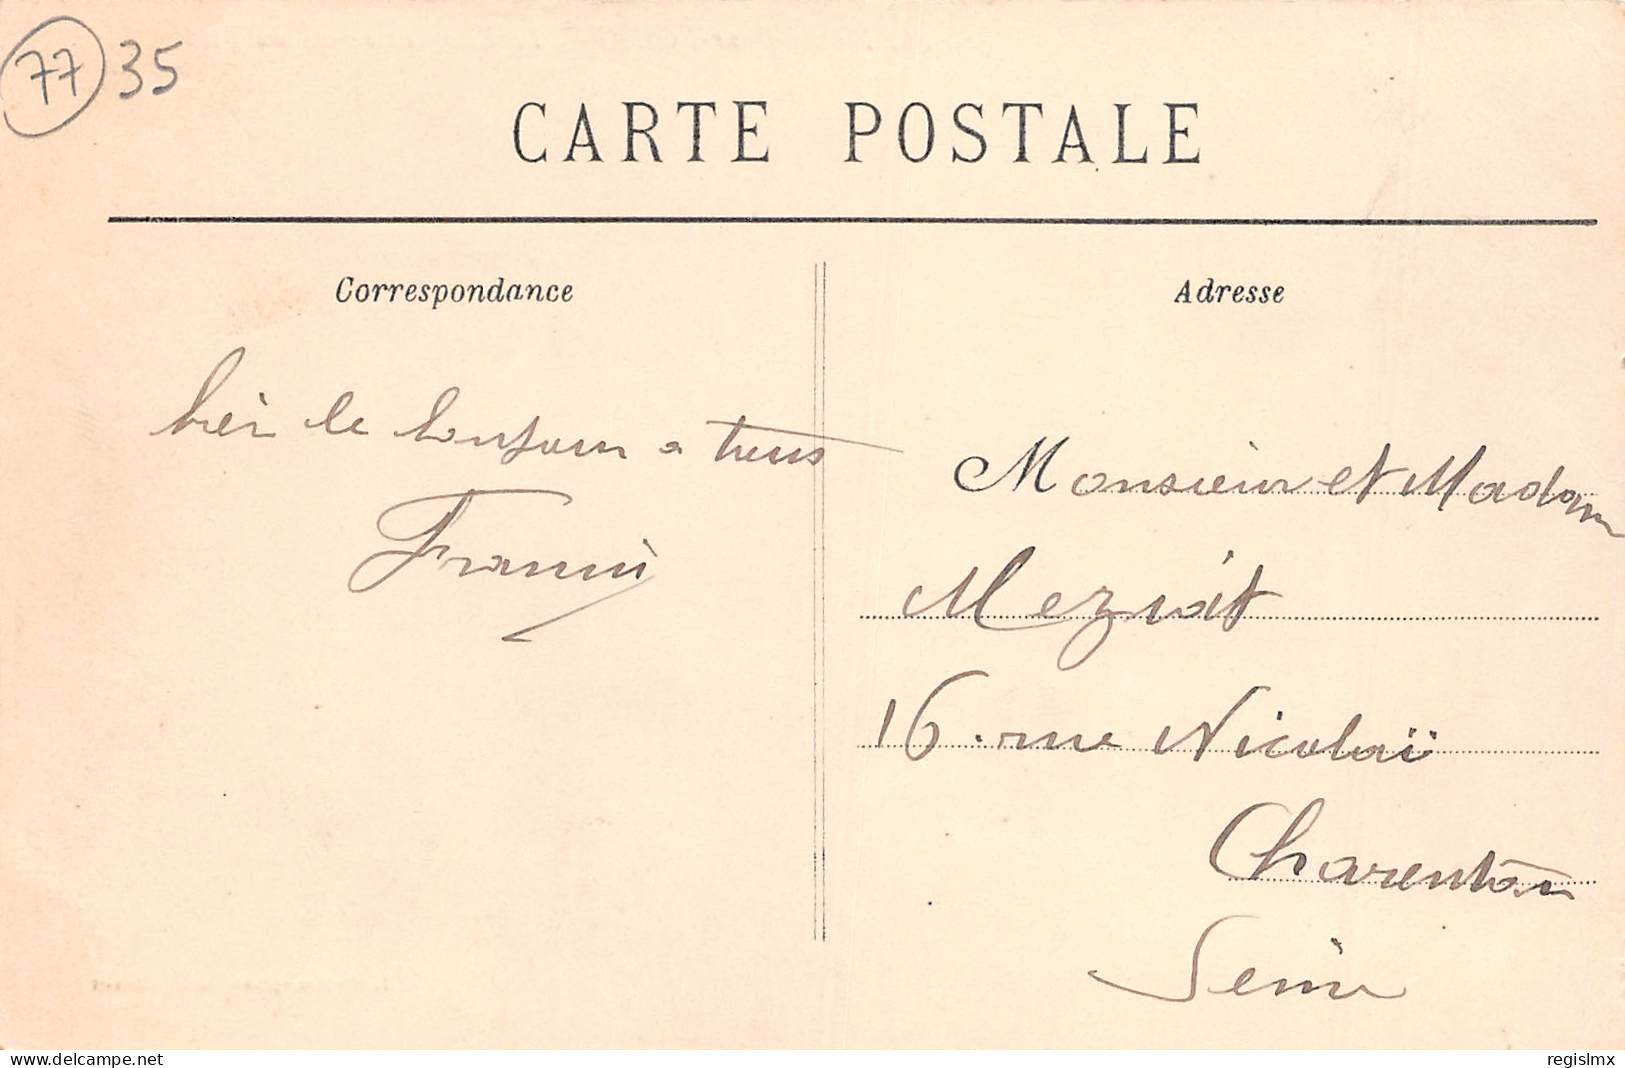 77 35
CARTE POSTALE
Correspondance
Adresse
bien le bonjour a tous
Monsieur et Madam
16 rue Nicolaï
Charenton
Seine
delcampe.net
regislmx